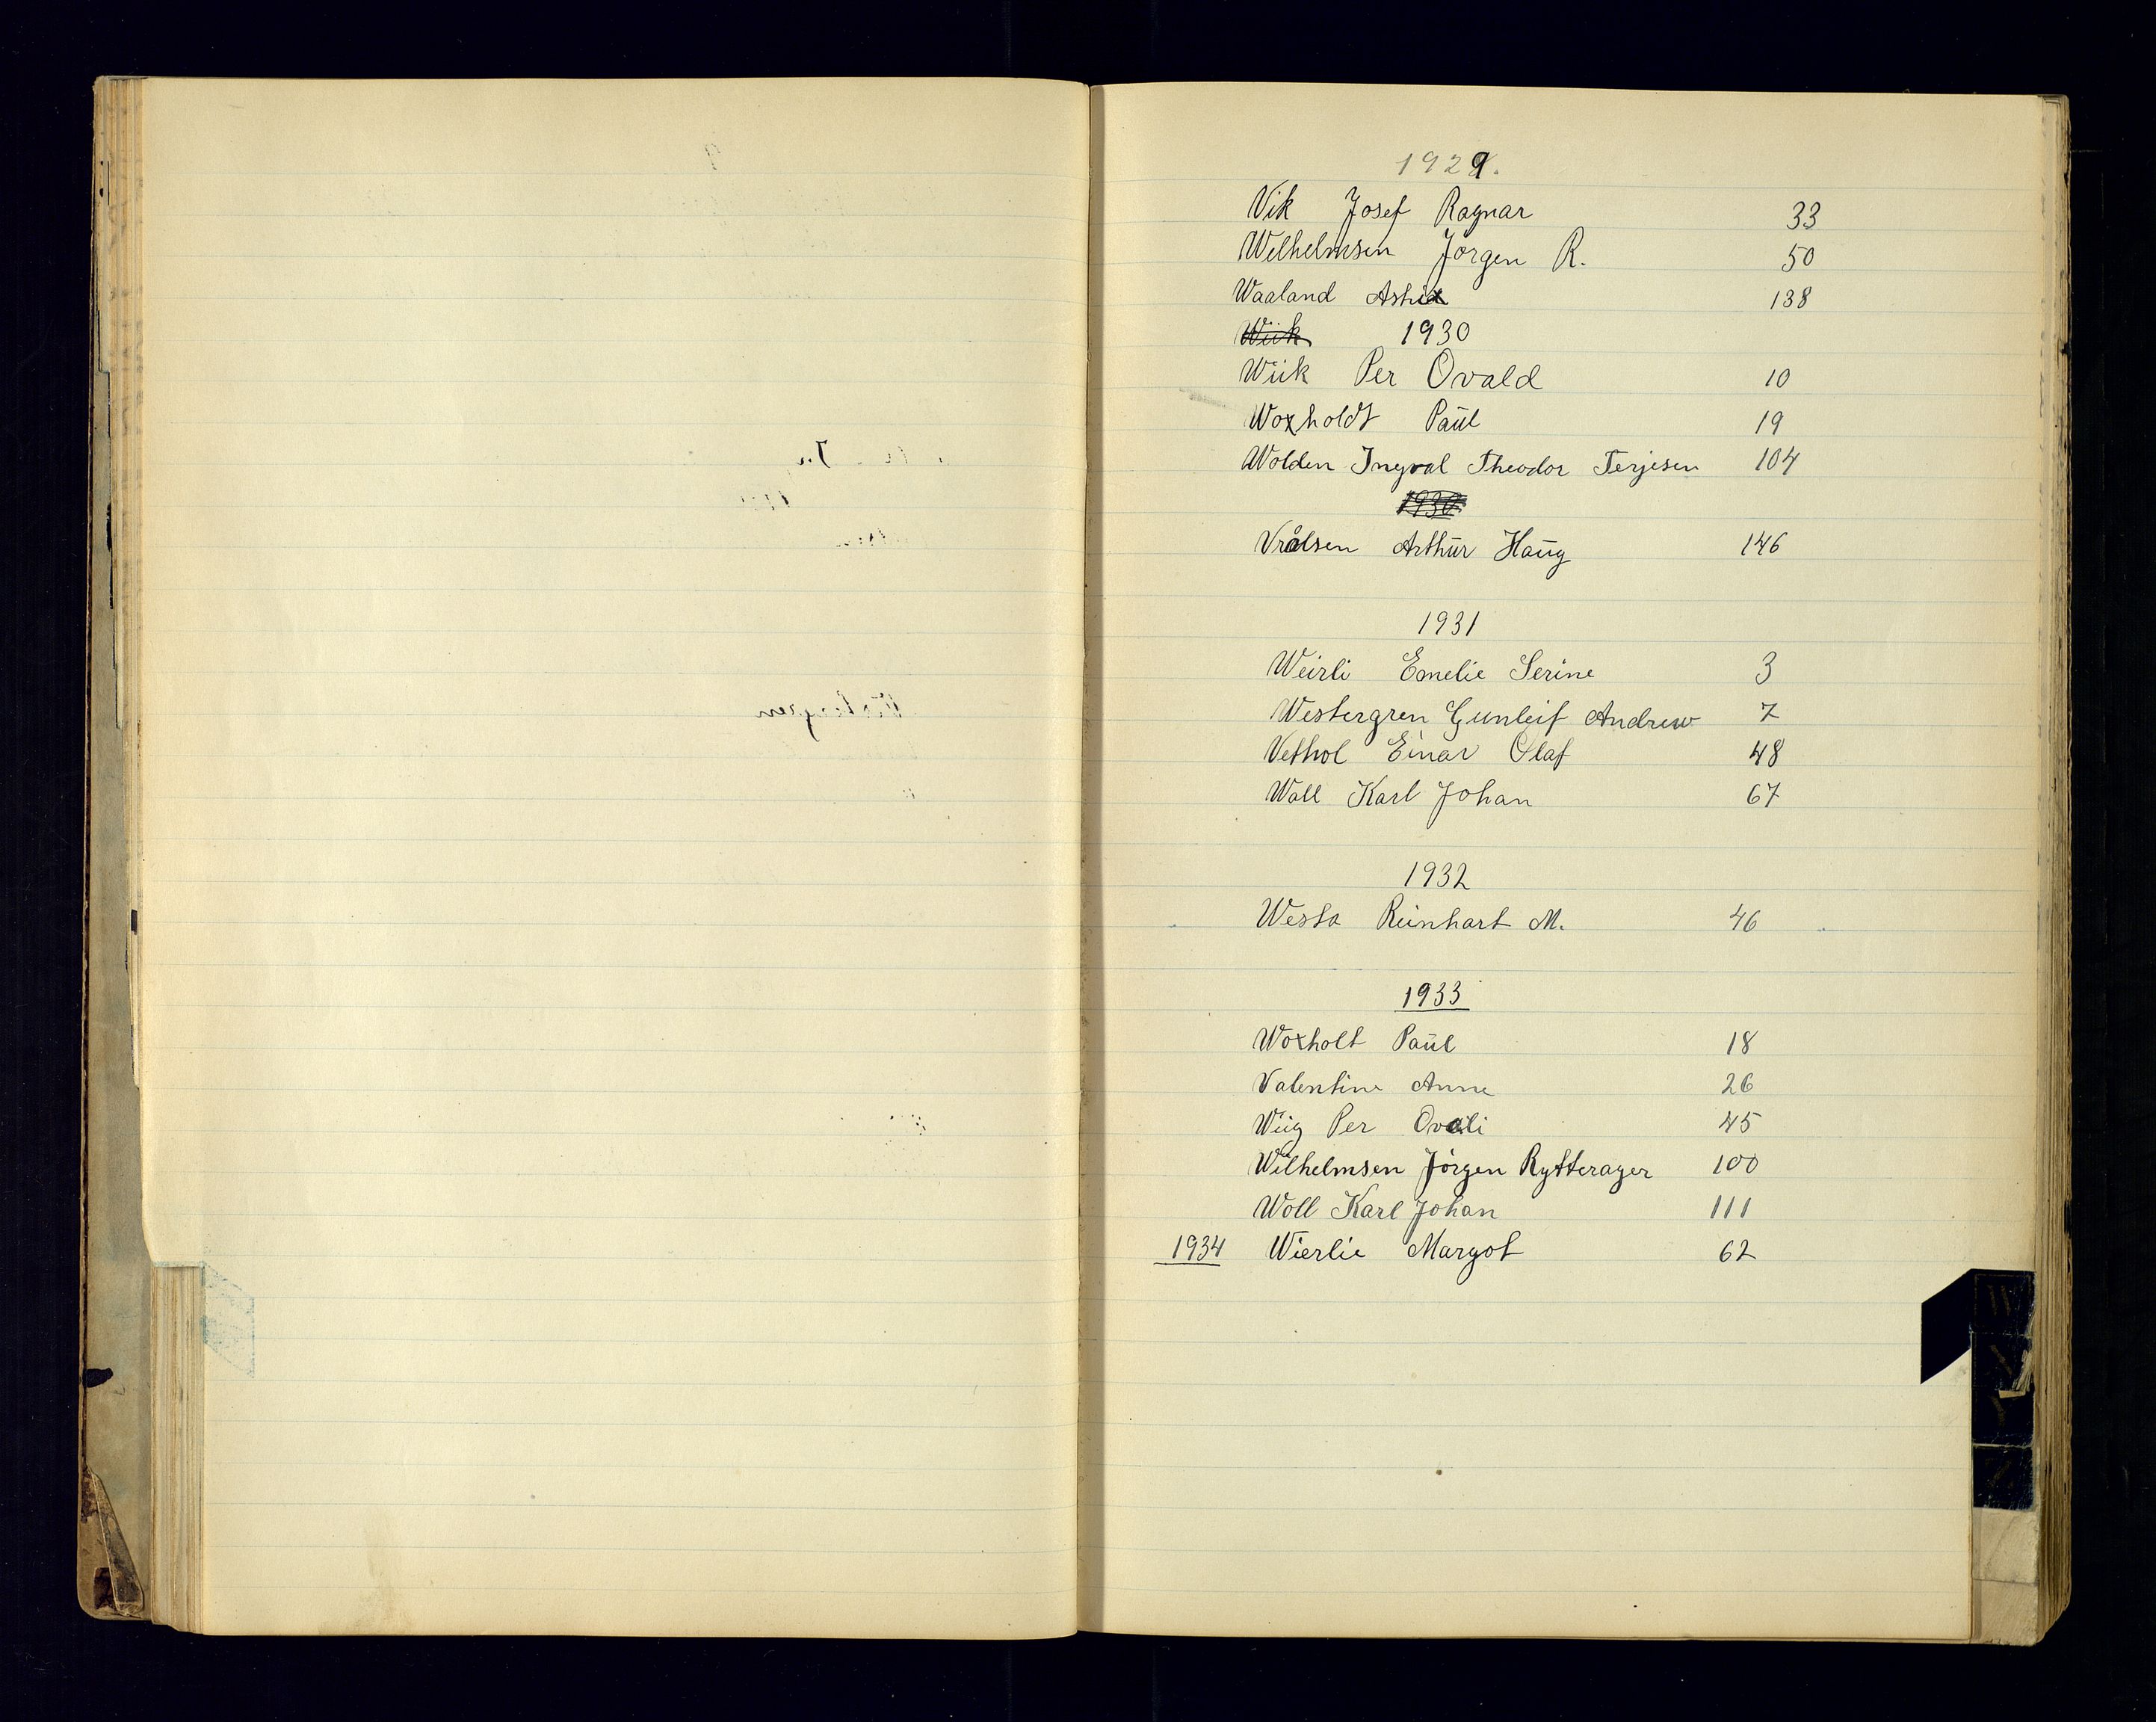 1929.
Vik Josef Ragnar 33
Wilhelmsen Jørgen R. 50
Waaland Astrid 138
Wiik 1930
Wiik Per Ovald 10
Woxholdt Paul 19
Wolden Ingval Theodor Terjesen 104
1930
Vrålsen Arthur Haug 146
1931
Weirli Emelie Serine 3
Westergren Gunleif Andrew 7
Vethol Einar Olaf 48
Woll Karl Johan 67
1932
Westa Reinhart M. 46
1933
Woxholt Paul 18
Valentine Anne 26
Wiig Per Ovali 45
Wilhelmsen Jørgen Rytterager 100
Woll Karl Johan 111
1934 Wierlie Margot 62